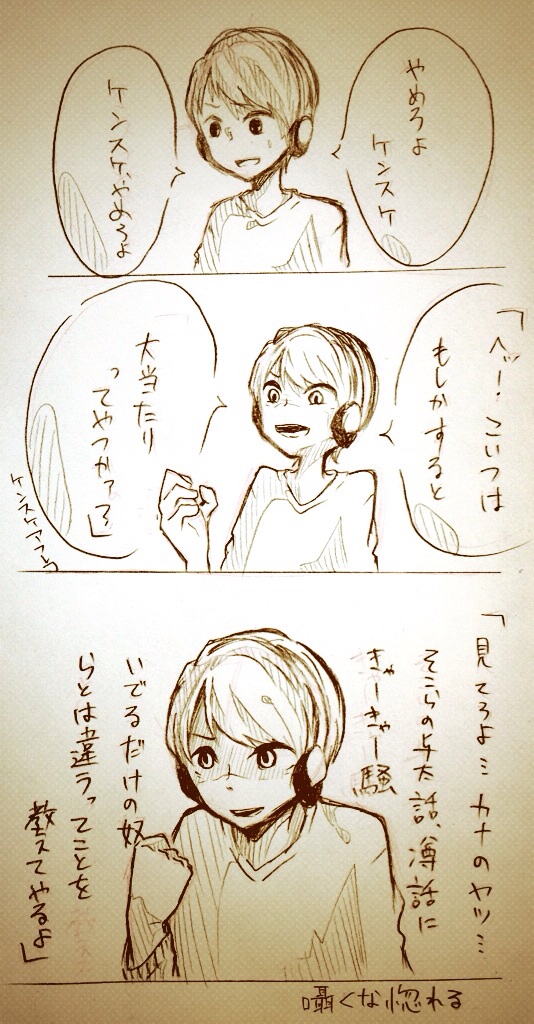 やめろよ
ケンスケ
ケンスケ、やめろよ
「ヘッ!こいつは
もしかすると
大当たり
ってやつかァ?」
「見てろよ…カナのヤツ…
そこらの与太話、噂話に
きゃーきゃー騒
いでるだけの奴
らとは違うってことを
教えてやるよ」
囁くな惚れる